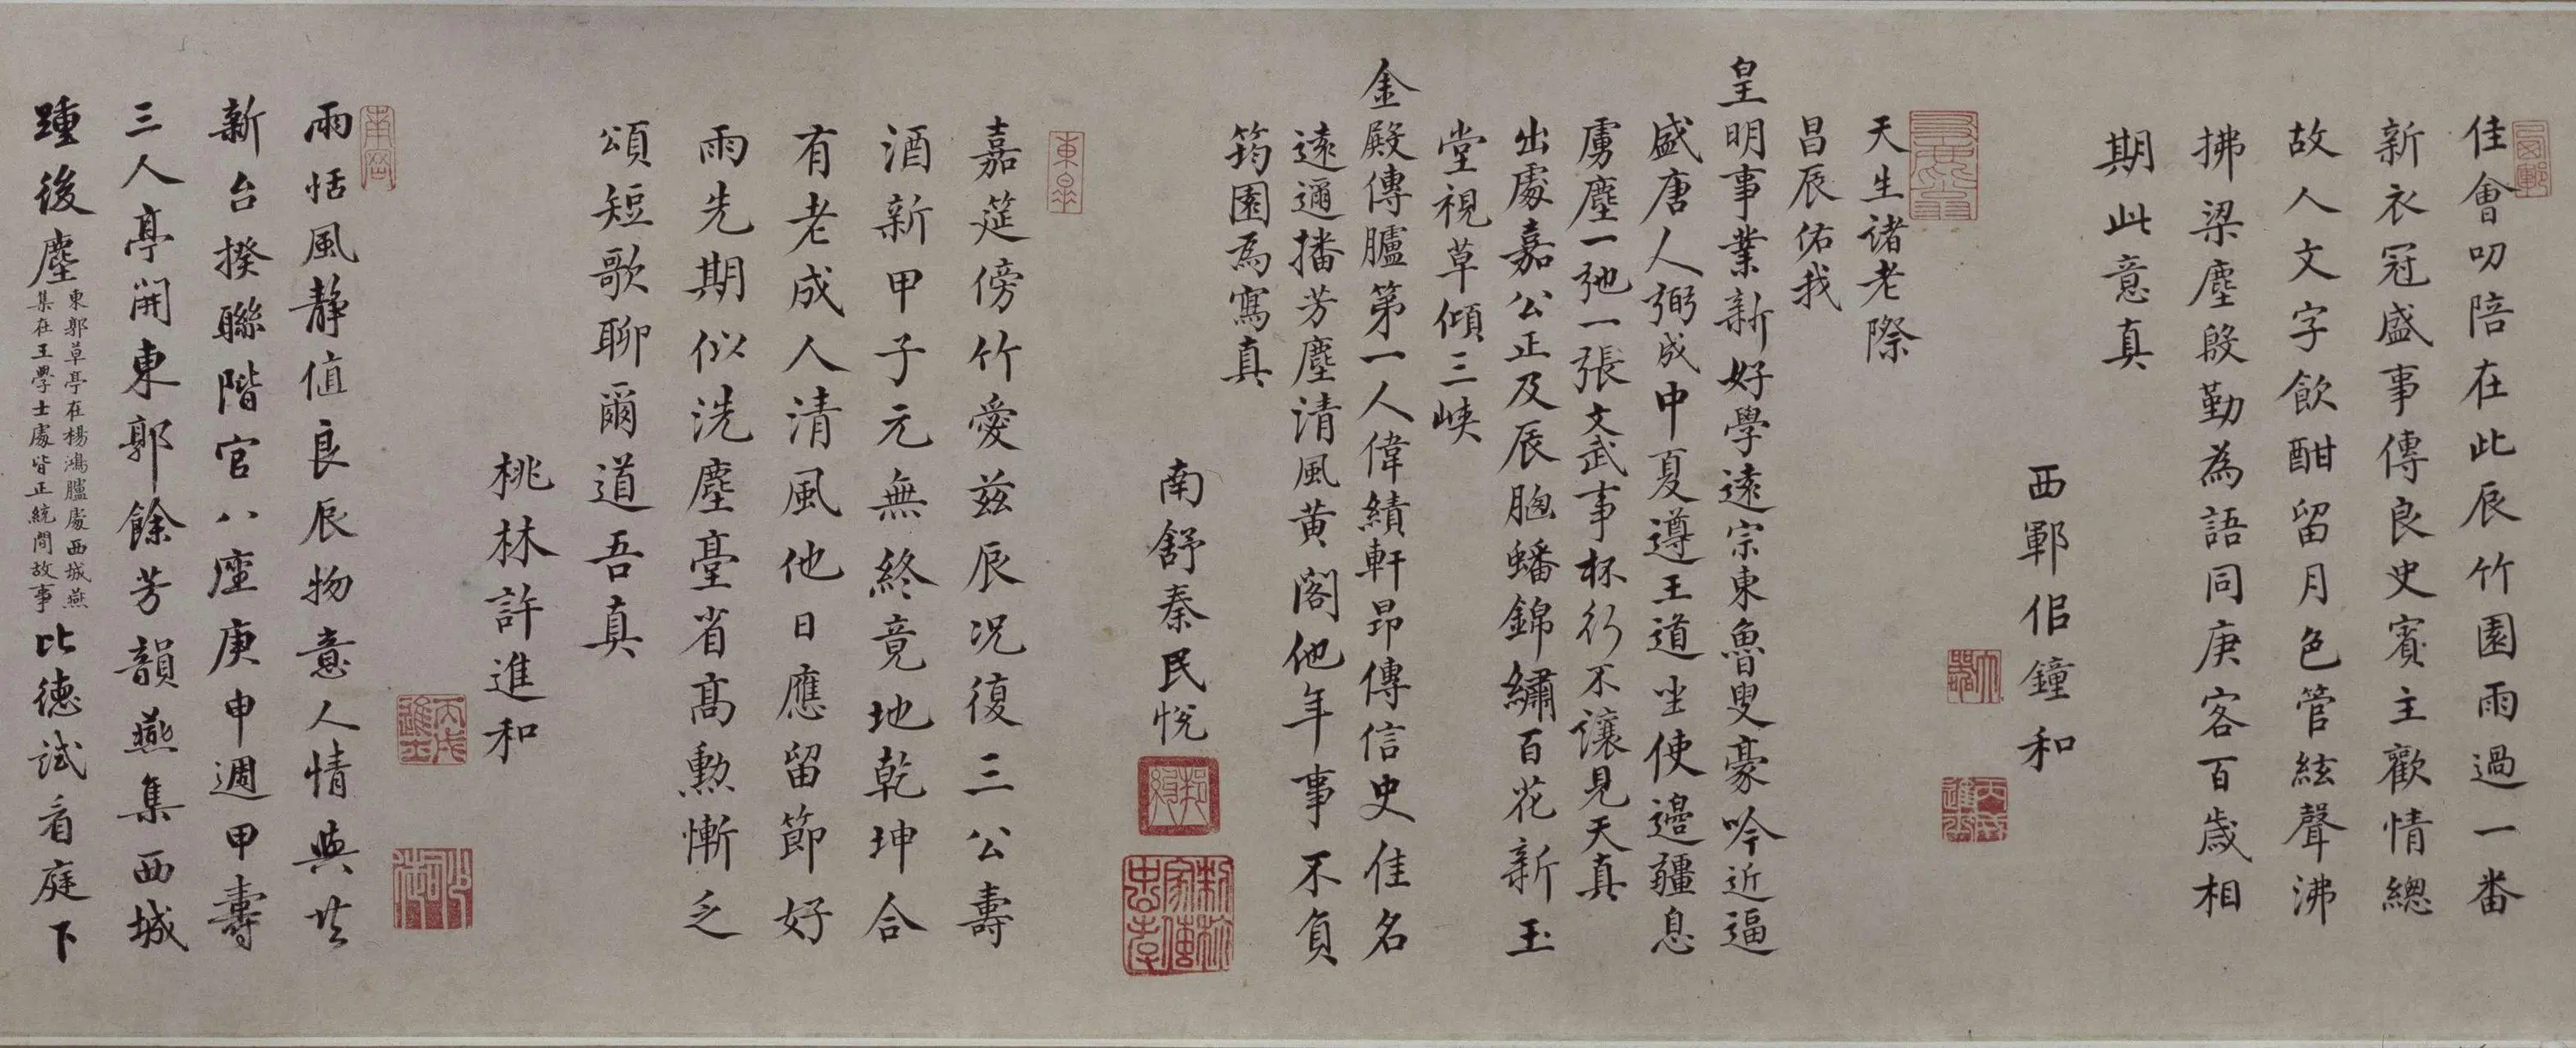 佳會叨陪在此辰竹園雨過一番
新衣冠盛事傳良史賓主歡情總
故人文字飲酣留月色管絃聲沸
拂梁塵殷勤為語同庚客百歲相
期此意真
西鄆佀鐘和
天生諸老際
昌辰佑我
皇明事業新好學遠宗東魯叟豪吟近逼
盛唐人弼成中夏遵王道坐使邊疆息
虜塵一弛一張文武事杯行不讓見天真
出處嘉公正及辰胸蟠錦繡百花新玉
堂視草傾三峽
金殿傳臚第一人偉績軒昂傳信史佳名
遠邇播芳塵清風黄閣他年事不負
筠園為寫真
南舒秦民悅
東皋
嘉筵傍竹愛茲辰況復三公壽
酒新甲子元無終竟地乾坤合
有老成人清風他日應留節好
雨先期似洗塵臺省高勳慚乏
頌短歌聊爾道吾真
桃林許進和
雨恬風靜值良辰物意人情與共
新台揆聯階官八座庚申週甲壽
三人亭開東郭餘芳韻燕集西城
踵後塵
東郭草亭在楊鴻臚處西城燕
集在王學士處皆正統間故事
比德試看庭下